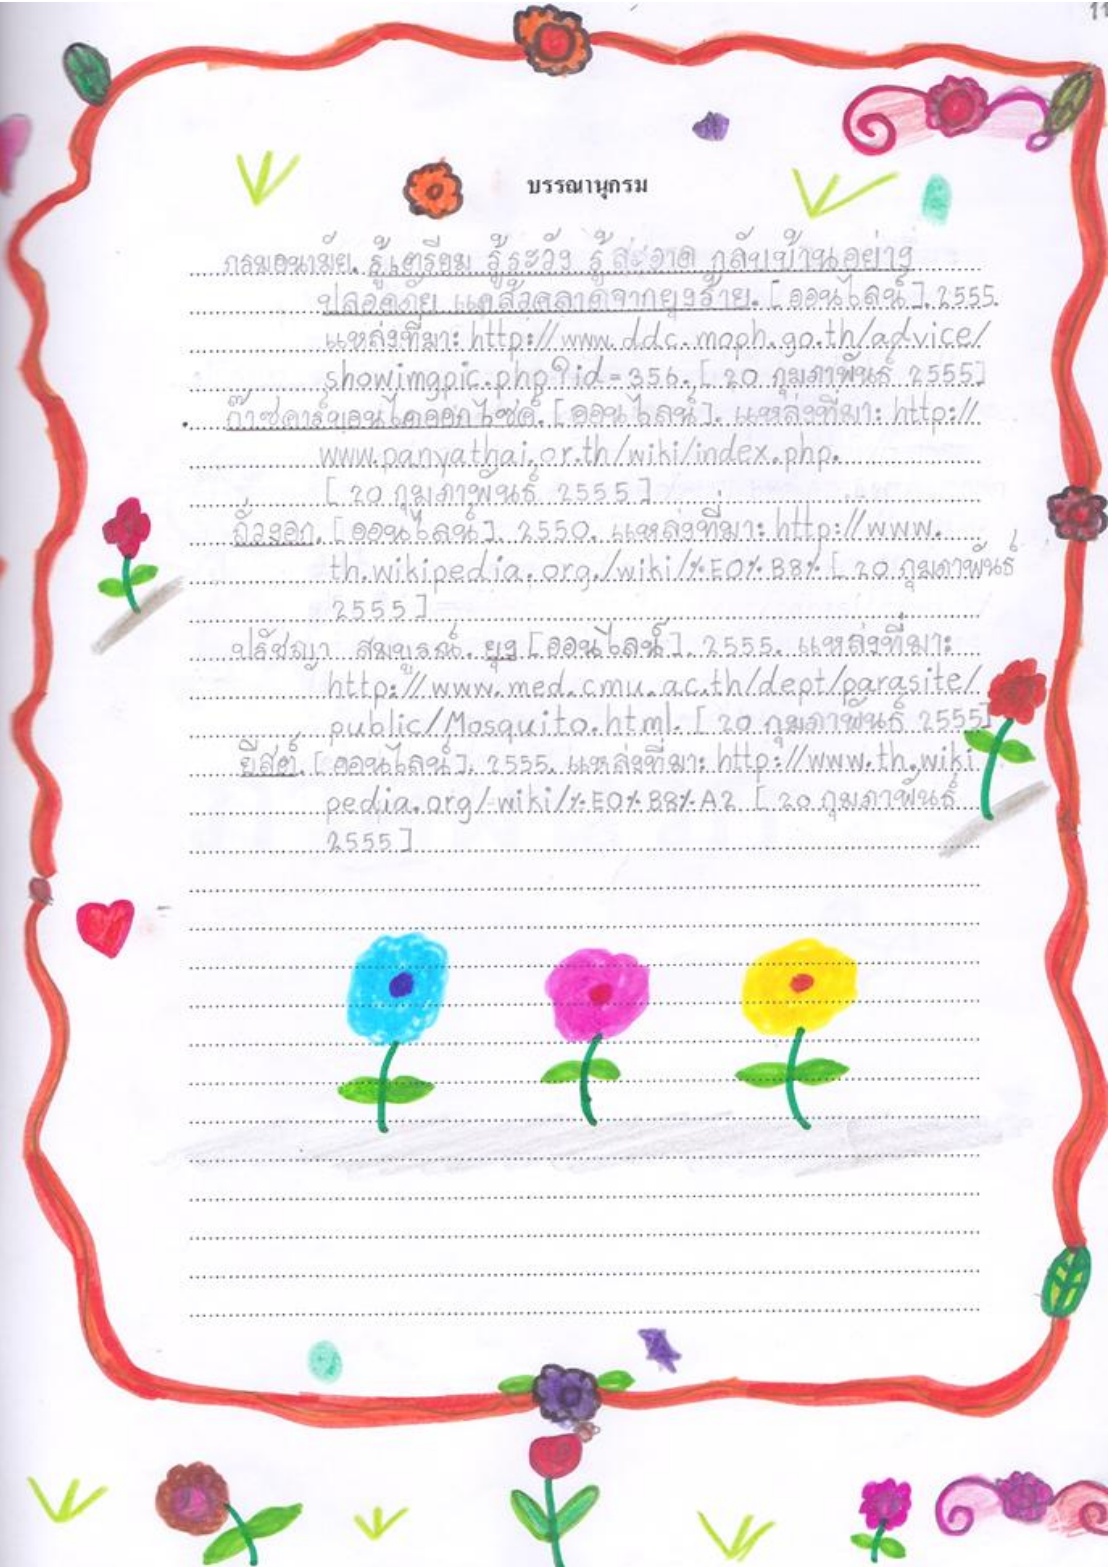 11
บรรณานุกรม
กรมอนามัย. รู้เตรียม รู้ระวัง รู้สะอาด กลับบ้านอย่าง
ปลอดภัย แคล้วคลาดจากยุงร้าย. [ออนไลน์]. 2555.
แหล่งที่มา: http://www.ddc.moph.go.th/advice/
showimgpic.php?id=356. [20 กุมภาพันธ์ 2555]
ก๊าซคาร์บอนไดออกไซด์. [ออนไลน์]. แหล่งที่มา: http://
www.panyathai.or.th/wiki/index.php.
[20 กุมภาพันธ์ 2555]
ถั่วงอก. [ออนไลน์]. 2550. แหล่งที่มา: http://www.
th.wikipedia.org./wiki/%E0%B8% [20 กุมภาพันธ์
2555]
ปรัชญา สมบูรณ์. ยุง [ออนไลน์]. 2555. แหล่งที่มา:
http://www.med.cmu.ac.th/dept/parasite/
public/Mosquito.html. [20 กุมภาพันธ์ 2555]
ยีสต์. [ออนไลน์]. 2555. แหล่งที่มา: http://www.th.wiki
pedia.org/wiki/%E0%B8%A2 [20 กุมภาพันธ์
2555]